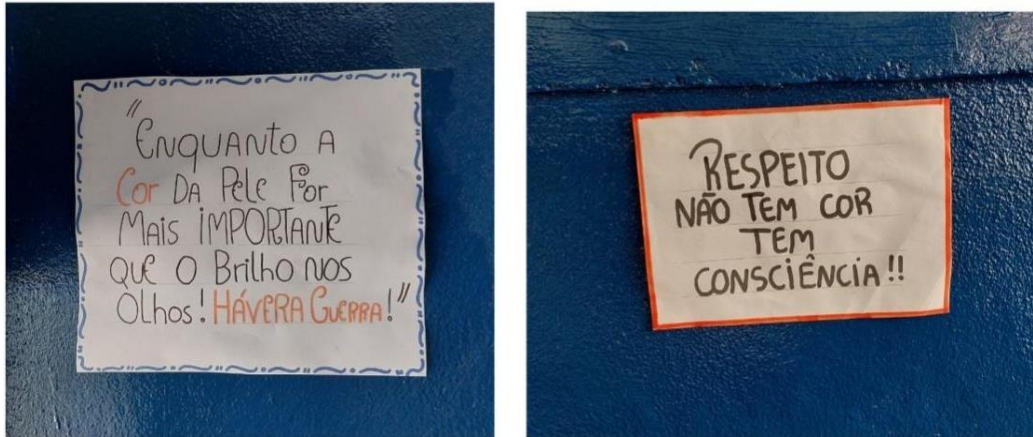 "ENQUANTO A
Cor DA Pele For
MAIS IMPORTANTE
QUE O Brilho NOS
OLhos! HÁVERA GUERRA!"
RESPEITO
NÃO TEM COR
TEM
CONSCIÊNCIA!!